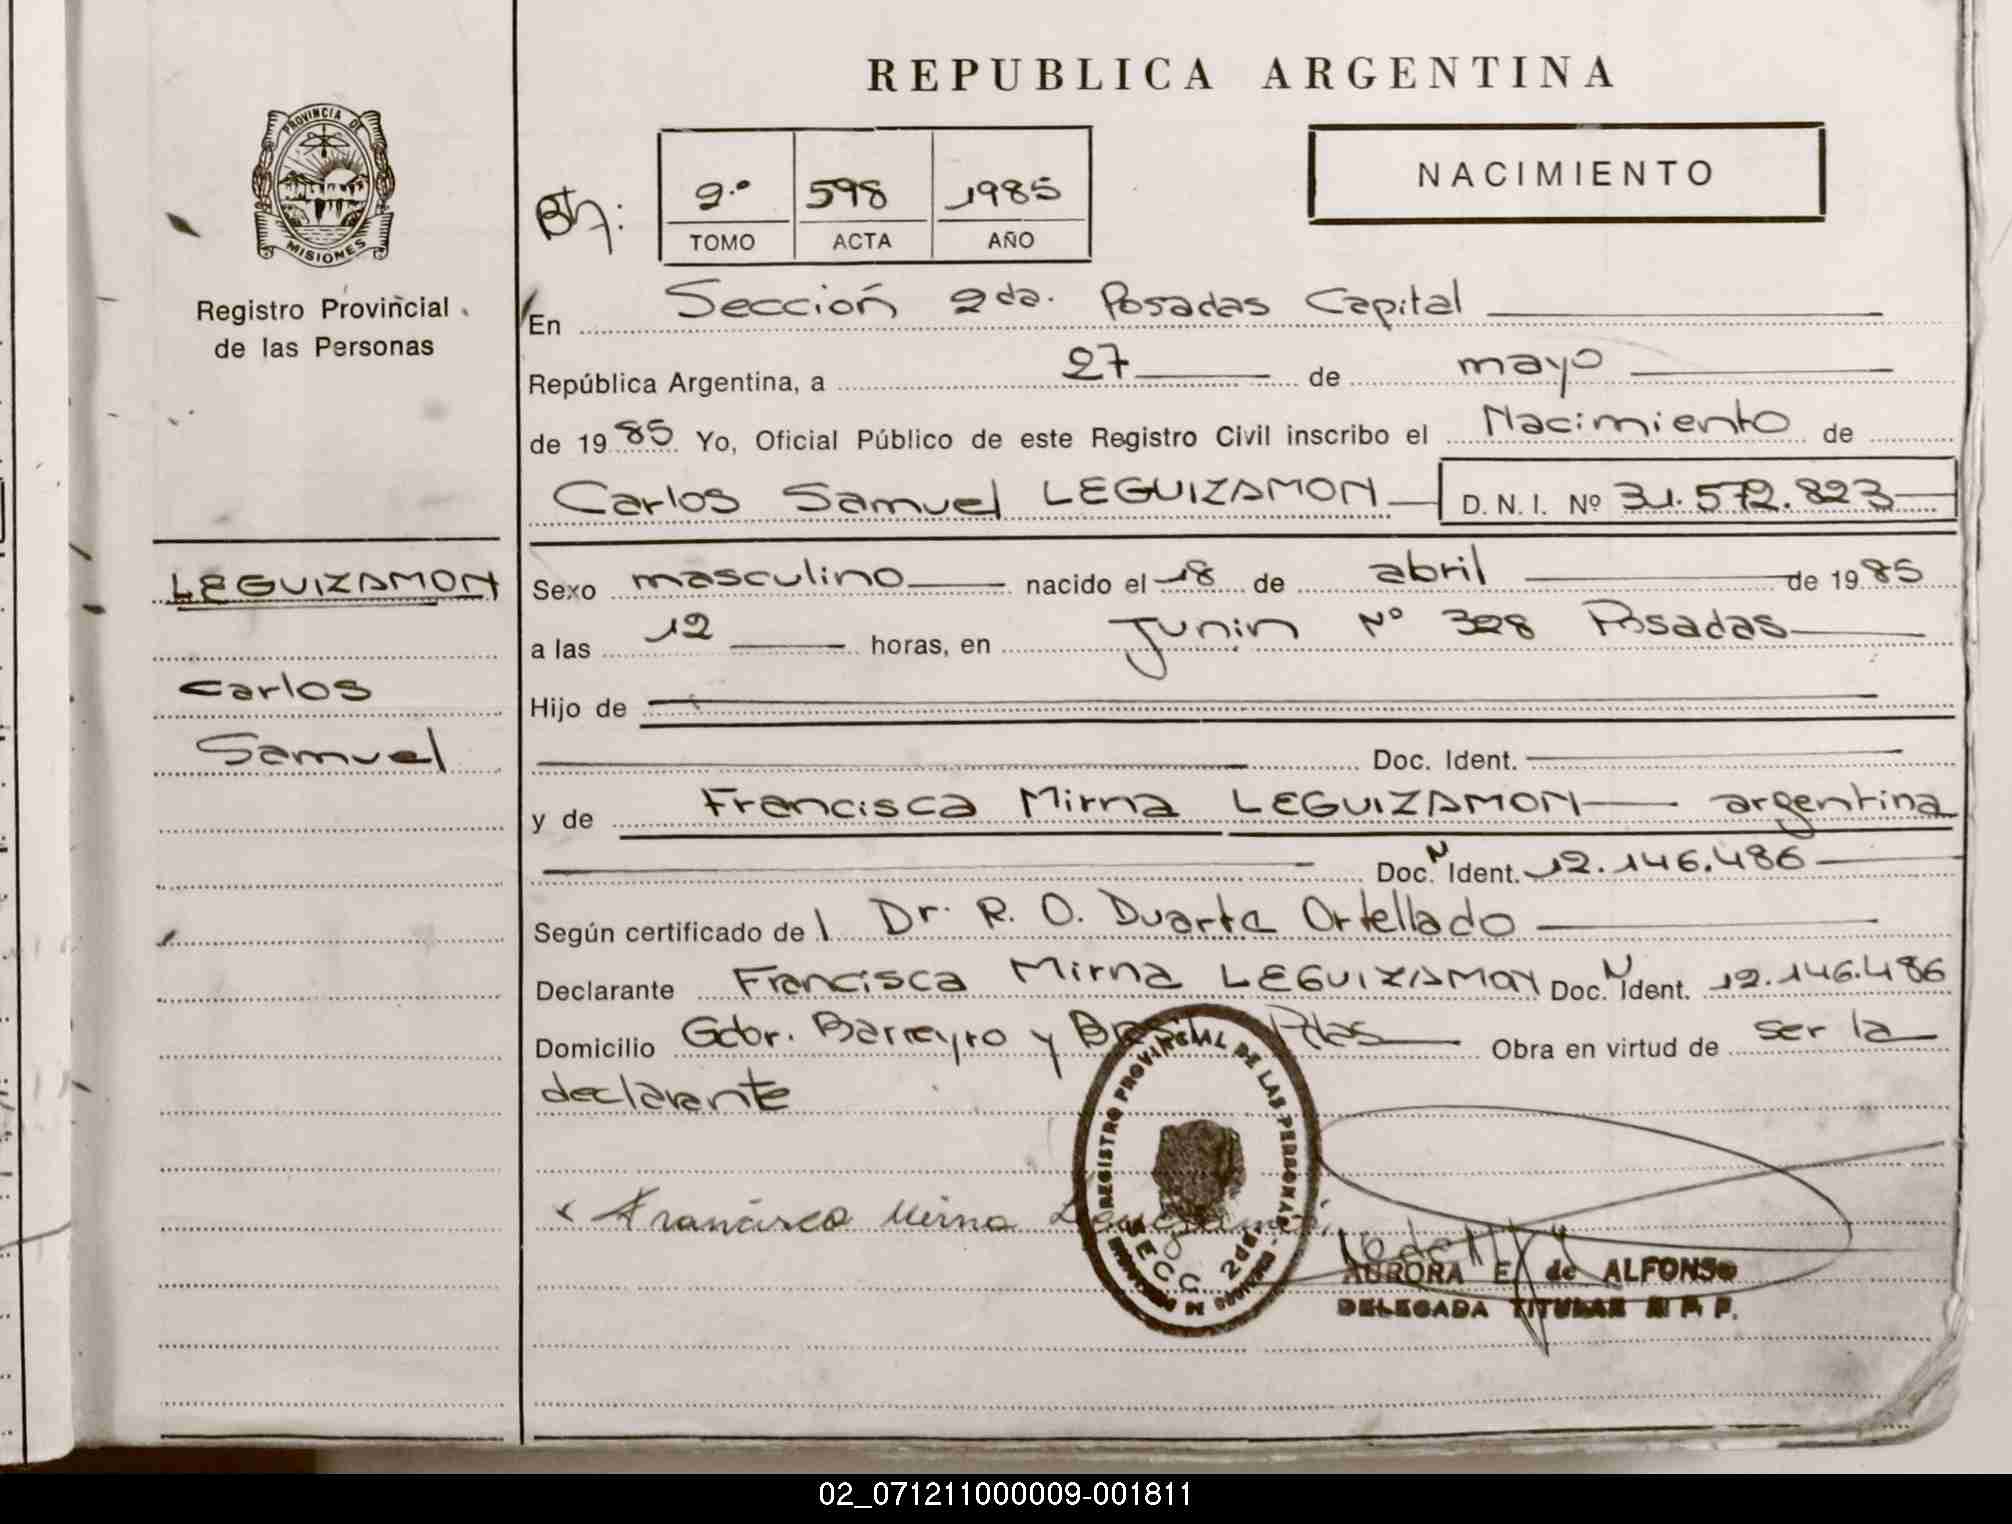 REPUBLICA ARGENTINA
PROVINCIA DE
MISIONES
Registro Provincial
de las Personas
2.º 598 1985
TOMO ACTA AÑO
NACIMIENTO
En Sección 2da. Posadas Capital
República Argentina, a 27 de mayo
de 1985 Yo, Oficial Público de este Registro Civil inscribo el Nacimiento de
Carlos Samuel LEGUIZAMON D. N. I. Nº 31.572.823
LEGUIZAMON
Carlos
Samuel
Sexo masculino nacido el 18 de abril de 1985
a las 12 horas, en Junin Nº 328 Posadas
Hijo de
Doc. Ident.
y de Francisca Mirna LEGUIZAMON argentina
Doc. N Ident. 12.146.486
Según certificado del Dr. R. O. Duarte Ortellado
Declarante Francisca Mirna LEGUIZAMON Doc. N Ident. 12.146.486
Domicilio Gdor. Barreyro y Brasil Pdas Obra en virtud de ser la
declarante
REGISTRO PROVINCIAL DE LAS PERSONAS
SECC. 2da.
Francisca Mirna Leguizamon
AURORA E. de ALFONSO
DELEGADA TITULAR R. P. P.
02_071211000009-001811